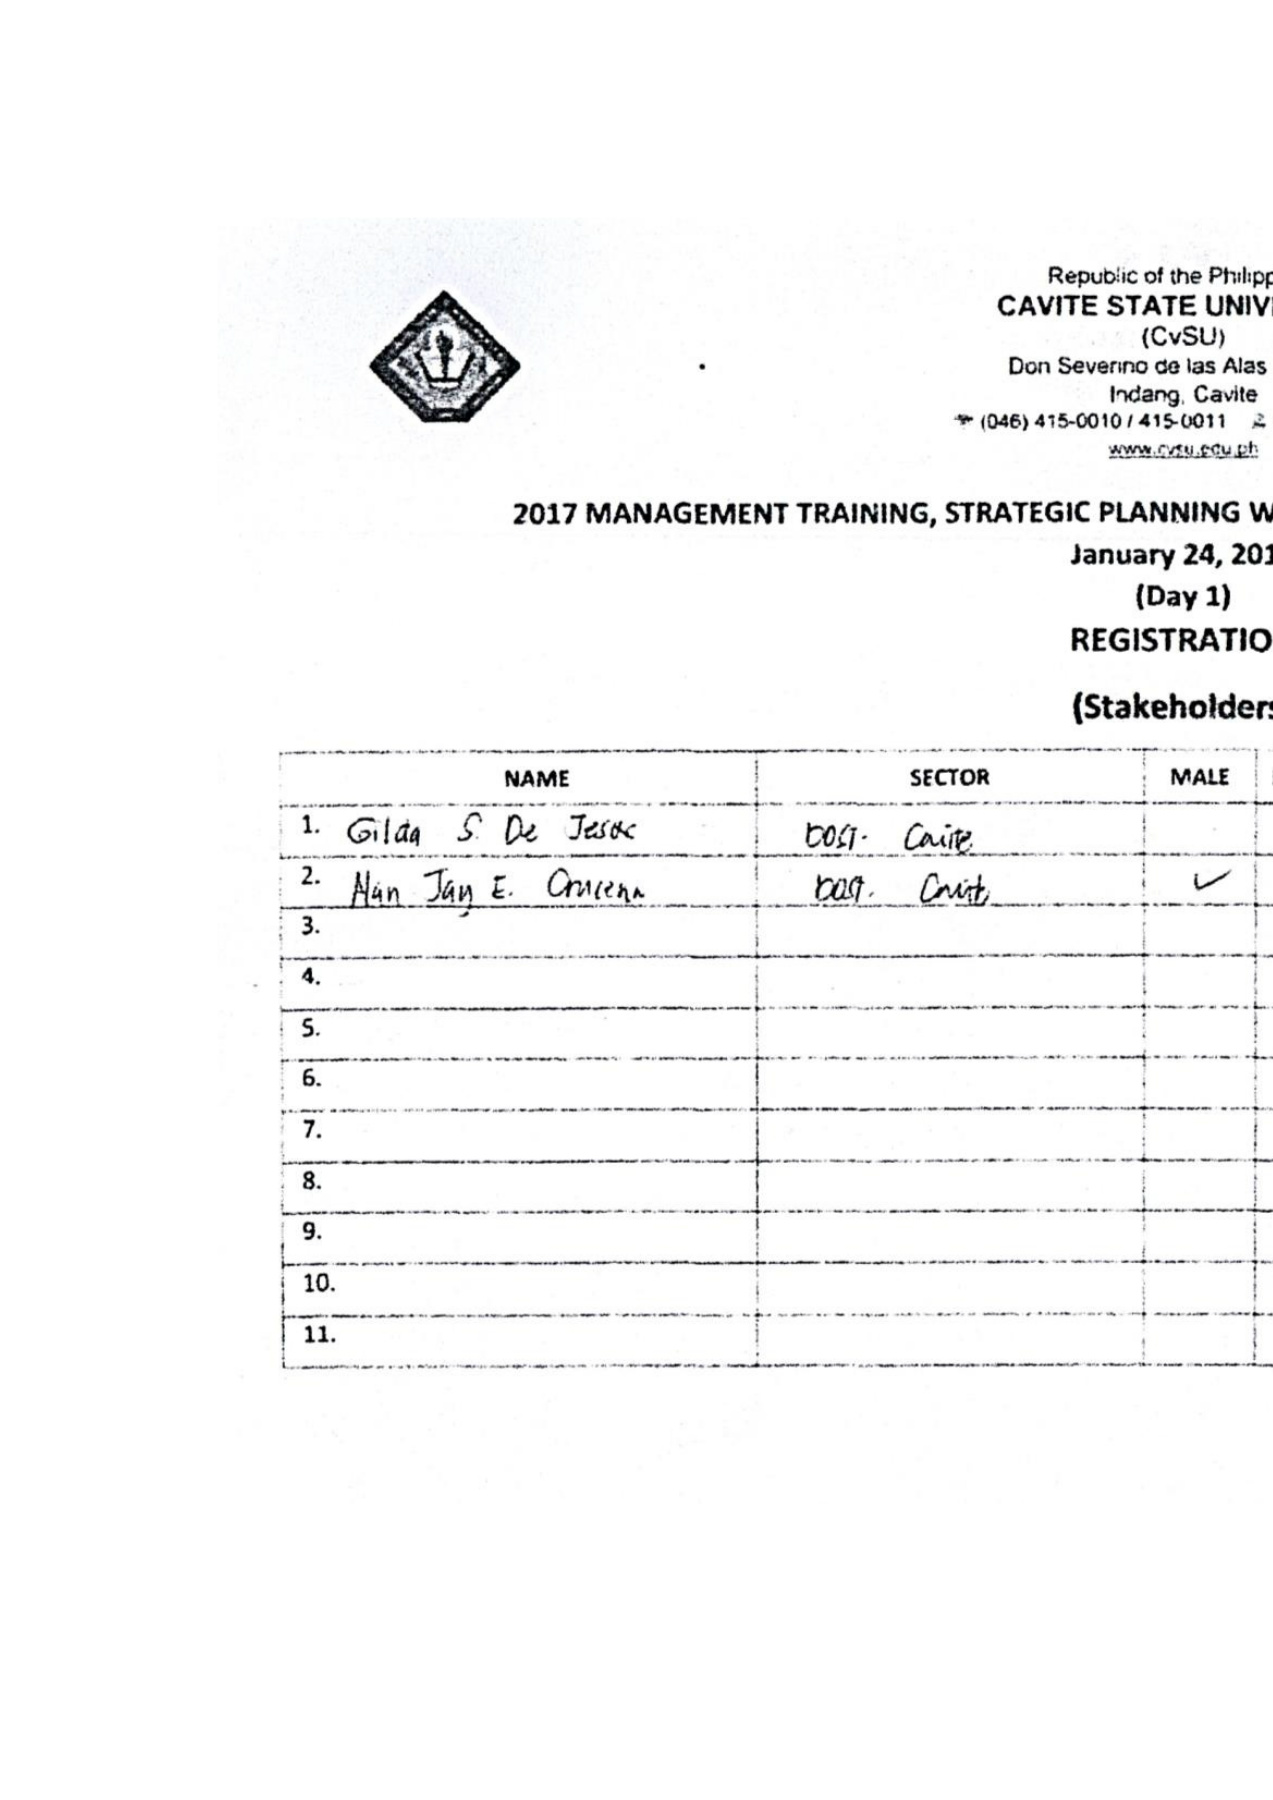 Republic of the Philipp
CAVITE STATE UNIV
(CvSU)
Don Severino de las Alas
Indang, Cavite
(046) 415-0010 / 415-0011
www.cvsu.edu.ph
2017 MANAGEMENT TRAINING, STRATEGIC PLANNING W
January 24, 201
(Day 1)
REGISTRATIO
(Stakeholders
NAME SECTOR MALE
1. Gilda S. De Jesus DOST- Cavite
2. Alan Jay E. DOST. Cavite ✓
3.
4.
5.
6.
7.
8.
9.
10.
11.